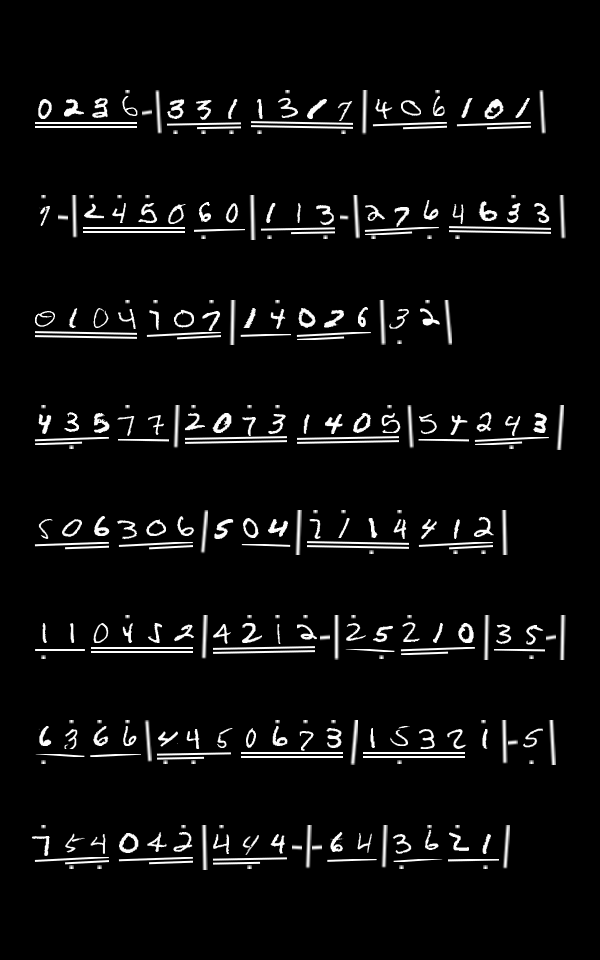 0236-|3311317|406101|
7-|245060|113-|2764633|
0104707|14026|32|
43577|20731405|54243|
506306|504|7114412|
110452|4212-|25210|35-|
6366|4450673|15321|-5|
754042|444-|-64|3621|